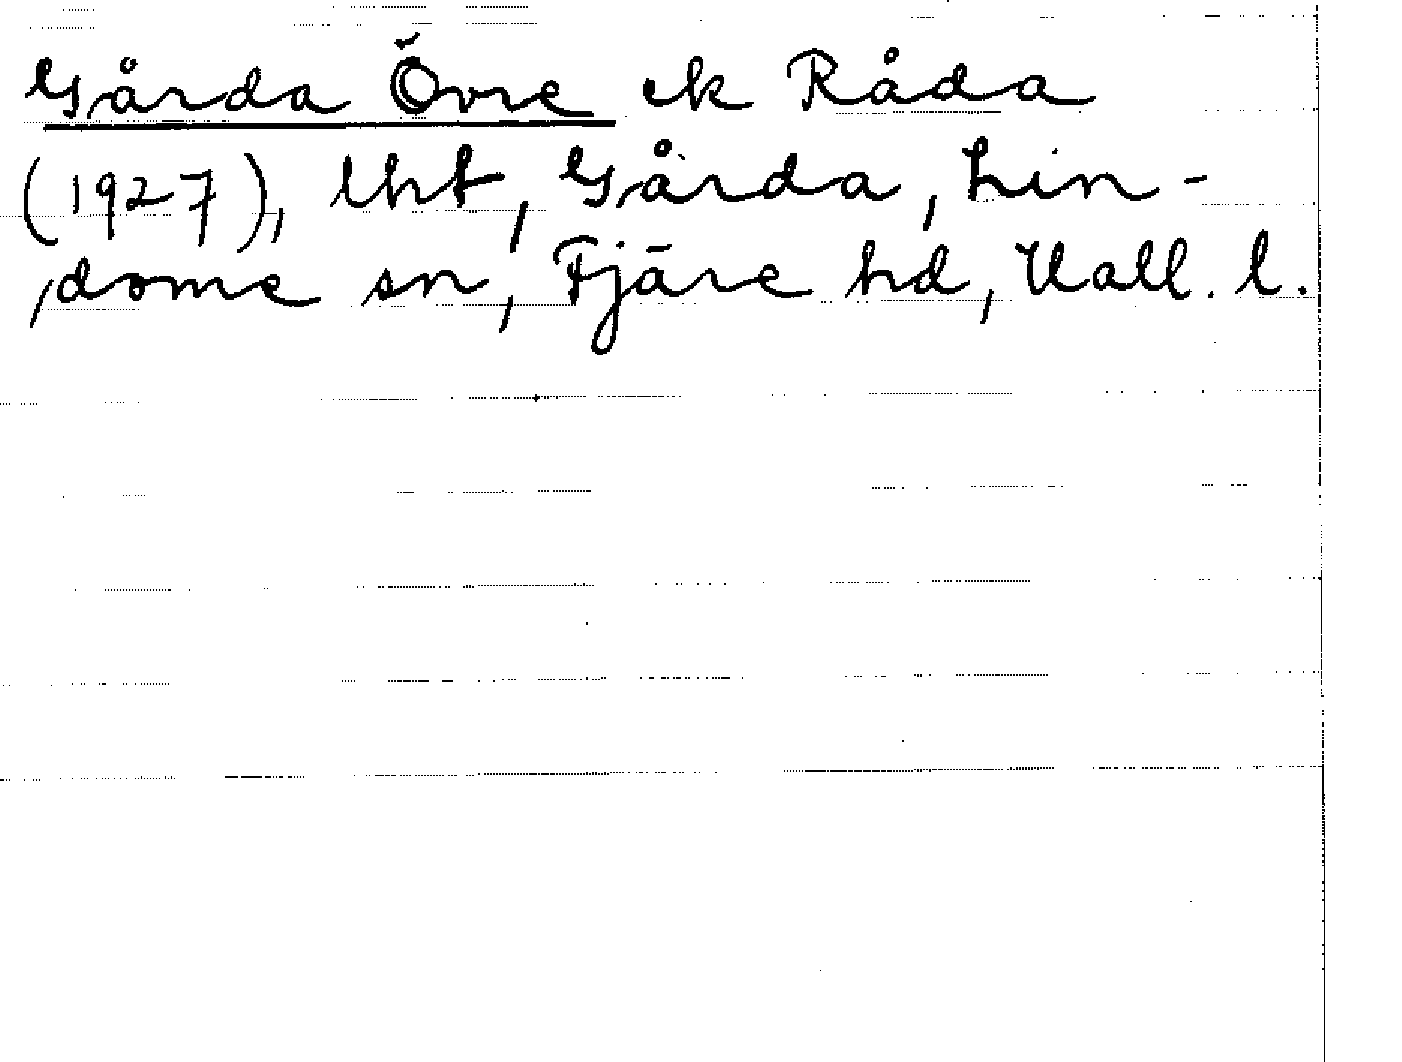 Gårda Övre ek Råda
(1927), lht, Gårda, Lin-
dome sn, Fjäre hd, Hall. l.